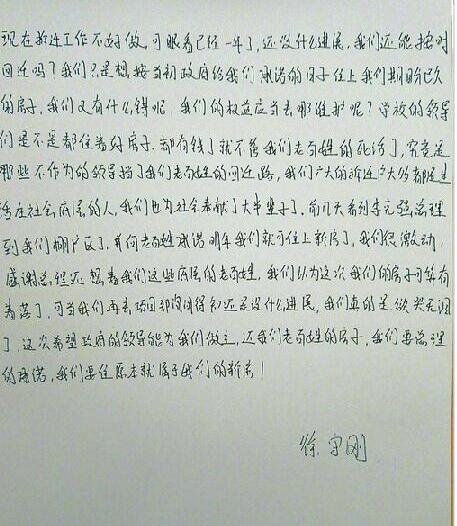 现在拆迁工作不好做,可眼看已经一年了,还没什么进展,我们还能按时
回迁吗?我们只是想按当初政府给我们承诺的日子住上我们期盼已久
的房子,我们又有什么错呢 我们的权益应当去哪维护呢?学校的领导
们是不是都住着好房子,都有钱了就不管我们老百姓的死活了,究竟是
哪些不作为的领导挡了我们老百姓的回迁路,我们广大的拆迁户大多都是生
活在社会底层的人,我们也为社会奉献了大半辈子,前几天看到李克强总理
到我们棚户区了,并向老百姓承诺明年我们就可住上新房了,我们很激动,
感谢总理还想着我们这些底层的老百姓,我们认为这次我们的房子可算有
着落了,可当我们再去项目部询问得知还是没什么进展,我们真的是欲哭无泪
了,这次希望政府的领导能为我们做主,还我们老百姓的房子,我们要总理
的承诺,我们要住原本就属于我们的新房!
徐守刚